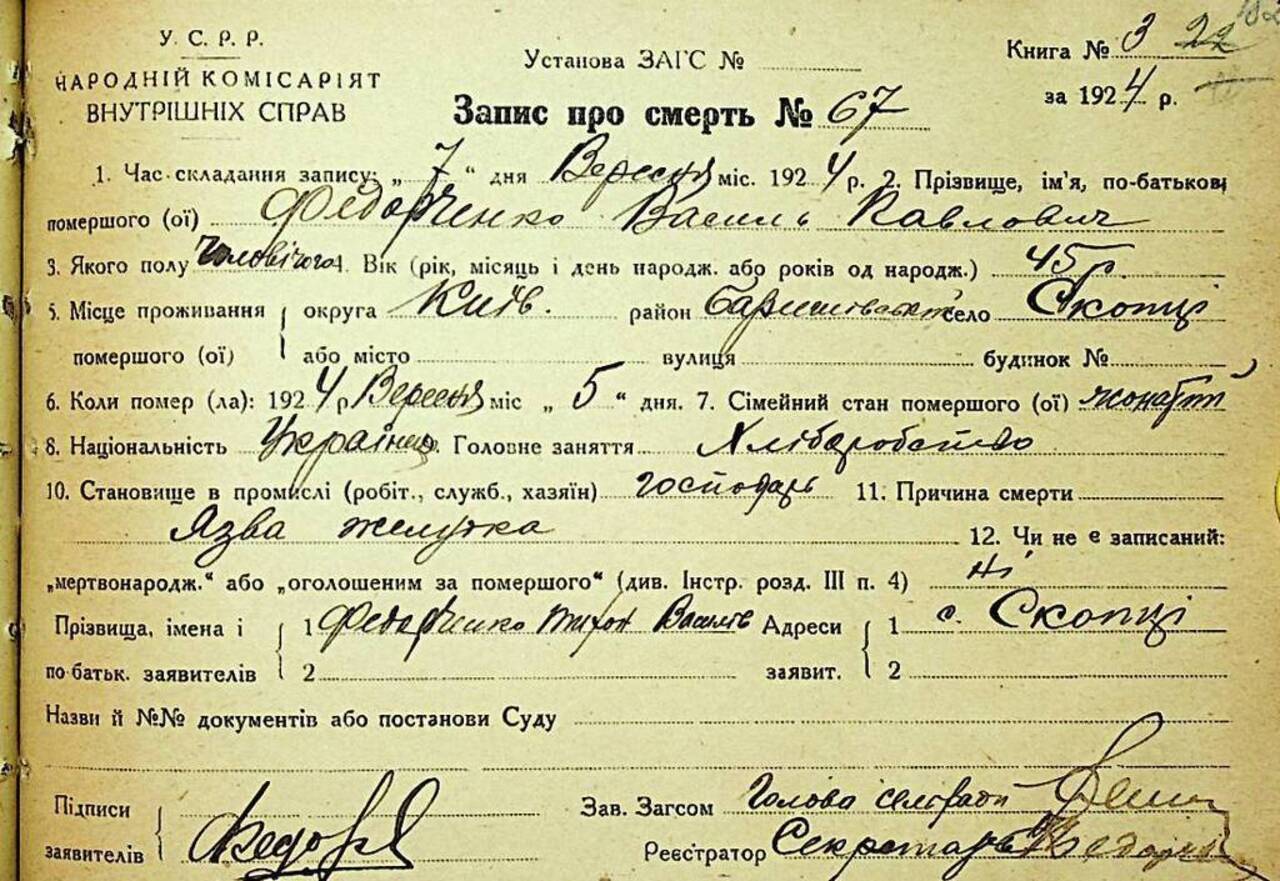 У. С. Р. Р.
НАРОДНІЙ КОМІСАРІЯТ
ВНУТРІШНІХ СПРАВ
Установа ЗАГС №
Книга № 3 22
за 1924 р.
Запис про смерть № 67
1. Час складання запису: „ 7 " дня Вересня міс. 1924 р. 2. Прізвище, ім'я, по-батькові
помершого (ої) Федорченко Василь Павлович
3. Якого полу Чоловічого 4. Вік (рік, місяць і день народж. або років од народж.) 45 р.
5. Місце проживання округа Київ. район Баришівський село Скопці
помершого (ої) або місто вулиця будинок №
6. Коли помер (ла): 1924 р Вересня міс „ 5 " дня. 7. Сімейний стан помершого (ої) жонатий
8. Національність Українец. Головне заняття Хліборобство
10. Становище в промислі (робіт., служб., хазяїн) господарь 11. Причина смерти
Язва желудка 12. Чи не є записаний:
„мертвонародж." або „оголошеним за помершого" (див. Інстр. розд. III п. 4) ні
Прізвища, імена і 1 Федорченко Василів Адреси 1 с. Скопці
по батьк. заявителів 2 заявит. 2
Назви й №№ документів або постанови Суду
Підписи Зав. Загсом Голова сельради
заявителів Федор Реєстратор Секретарь